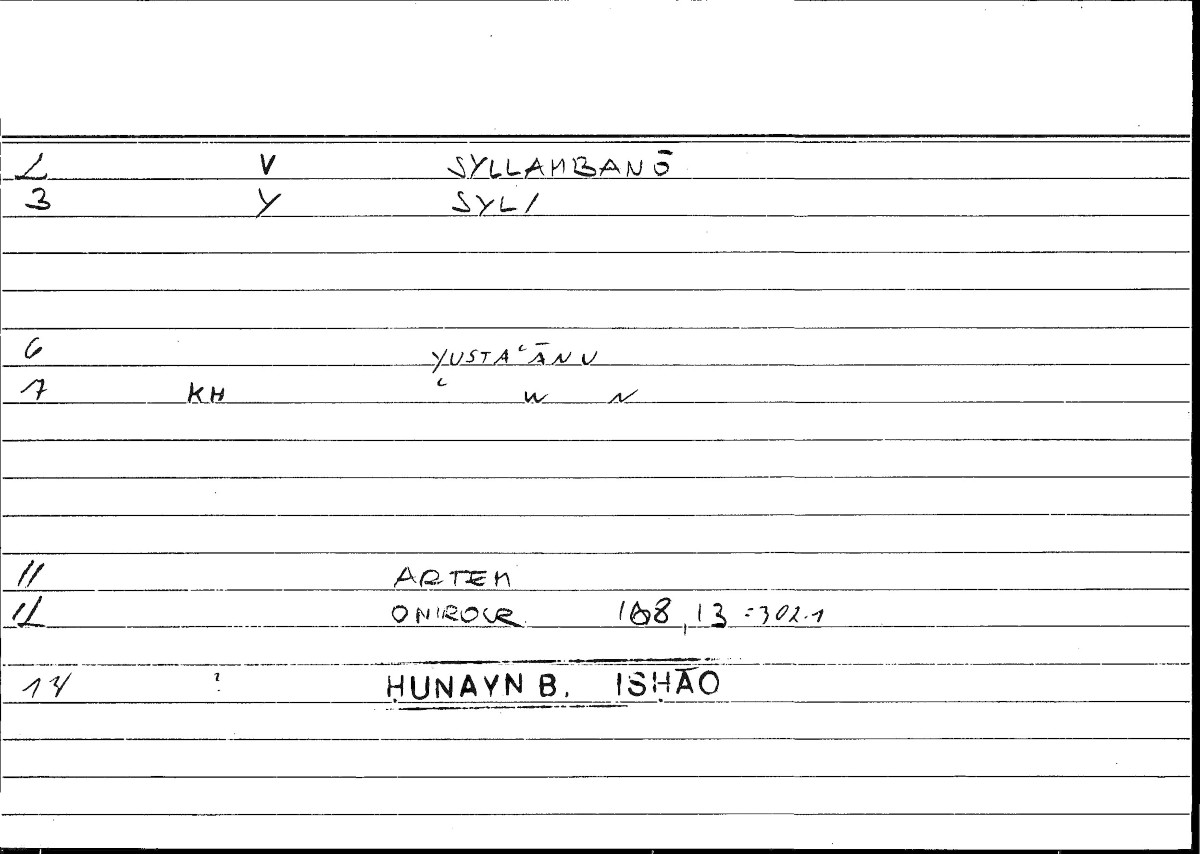 2 V SYLLAMBANŌ
3 Y SYL/
6 YUSTAʿĀNU
7 KH ʿ W N
11 ARTEM
12 ONIROCR 108,13 =302.1
14 ? ḤUNAYN B. ISḤĀQ